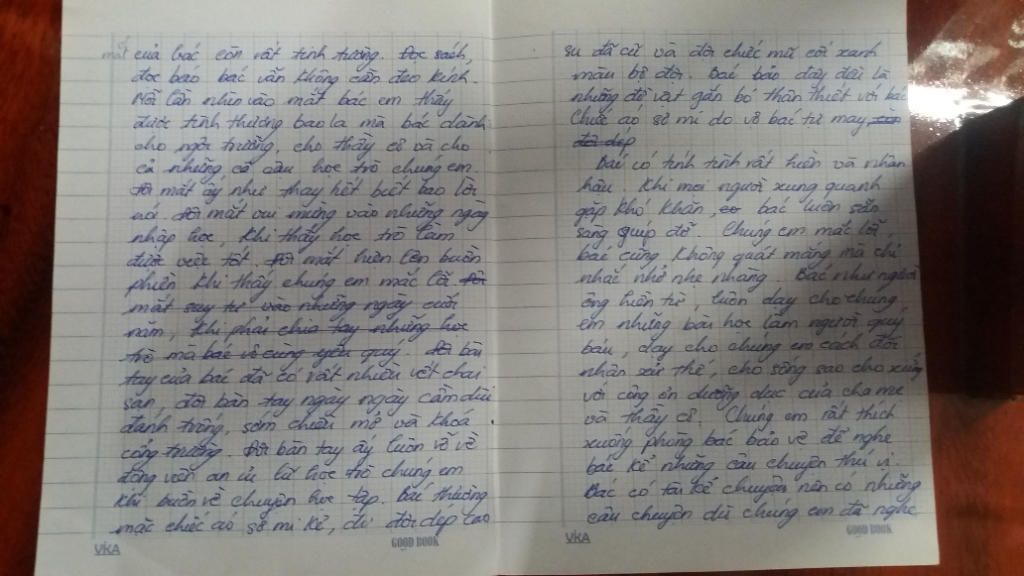 mắt của bác còn rất tinh tường. Đọc sách,
đọc báo bác vẫn không cần đeo kính.
Mỗi lần nhìn vào mắt bác em thấy
được tình thương bao la mà bác dành
cho ngôi trường, cho thầy cô và cho
cả những cô cậu học trò chúng em.
Đôi mắt ấy như thay hết biết bao lời
nói. Đôi mắt vui mừng vào những ngày
nhập học, khi thấy học trò làm
được việc tốt. Đôi mắt hiện lên buồn
phiền khi thấy chúng em mắc lỗi. Đôi
mắt suy tư vào những ngày cuối
năm, khi phải chia tay những học
trò mà bác vô cùng yêu quý. Đôi bàn
tay của bác đã có rất nhiều vết chai
sần, đôi bàn tay ngày ngày cầm dùi
đánh trống, sớm chiều mở và khóa
cổng trường. Đôi bàn tay ấy luôn vỗ về
động viên an ủi lũ học trò chúng em
khi buồn về chuyện học tập. Bác thường
mặc chiếc áo sơ mi kẻ, đi đôi dép cao
su đã cũ và đội chiếc mũ cối xanh
màu bộ đội. Bác bảo đây đều là
những đồ vật gắn bó thân thiết với bác
Chiếc áo sơ mi do vợ bác tự may,
đôi dép
Bác có tính tình rất hiền và nhân
hậu. Khi mọi người xung quanh
gặp khó khăn, bác luôn sẵn
sàng giúp đỡ. Chúng em mắc lỗi,
bác cũng không quát mắng mà chỉ
nhắc nhở nhẹ nhàng. Bác như người
ông hiền từ, luôn dạy cho chúng
em những bài học làm người quý
báu, dạy cho chúng em cách đối
nhân xử thế, cho sống sao cho xứng
với công ơn dưỡng dục của cha mẹ
và thầy cô. Chúng em rất thích
xuống phòng bác bảo vệ để nghe
bác kể những câu chuyện thú vị.
Bác có tài kể chuyện nên có những
câu chuyện dù chúng em đã nghe
VKA
GOOD BOOK
VKA
GOOD BOOK